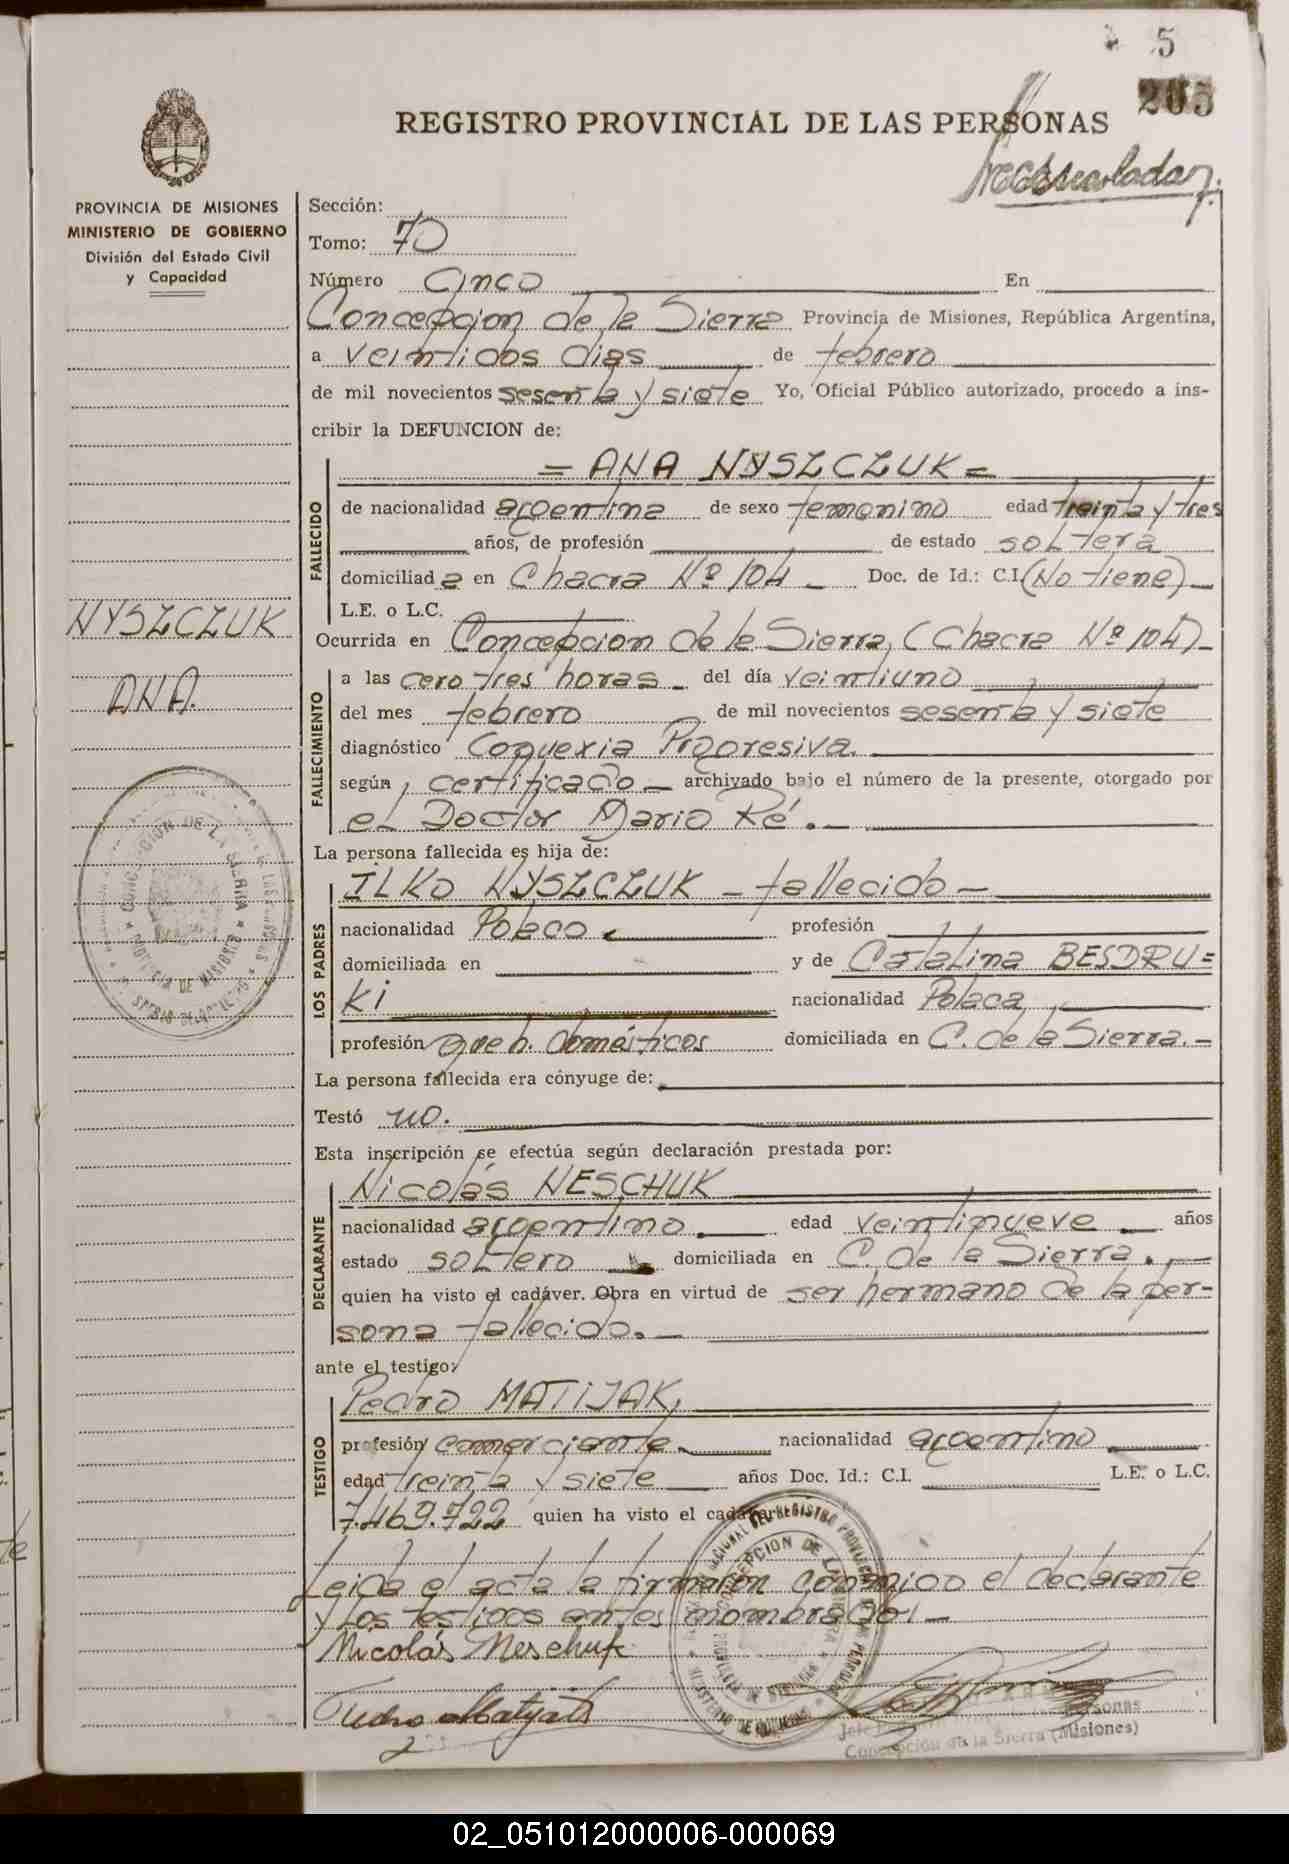 5
205
REGISTRO PROVINCIAL DE LAS PERSONAS
PROVINCIA DE MISIONES
MINISTERIO DE GOBIERNO
División del Estado Civil
y Capacidad
Sección:
Tomo: 70
Número Cinco En
Concepcion de la Sierra Provincia de Misiones, República Argentina,
a veintidos dias de febrero
de mil novecientos sesenta y siete Yo, Oficial Público autorizado, procedo a ins-
cribir la DEFUNCION de:
= ANA NYSZCZUK =
FALLECIDO
de nacionalidad argentina de sexo femenino edad treinta y tres
años, de profesión de estado soltera
domiciliada en Chacra Nº 104 - Doc. de Id.: C.I. (No tiene) -
L.E. o L.C.
NYSZCZUK
ANA.
Ocurrida en Concepcion de la Sierra, (Chacra Nº 104) -
FALLECIMIENTO
a las cero tres horas - del día veintiuno
del mes febrero de mil novecientos sesenta y siete
diagnóstico Coquexia Progresiva.
según, certificado - archivado bajo el número de la presente, otorgado por
el Doctor Mario Ré. -
La persona fallecida es hija de:
LOS PADRES
ILKO NYSZCZUK - fallecido -
nacionalidad Polaco profesión
domiciliada en y de Catalina BESDRU=
KI nacionalidad Polaca,
profesión queh. domésticos domiciliada en C. de la Sierra. -
La persona fallecida era cónyuge de:
Testó no.
Esta inscripción se efectúa según declaración prestada por:
DECLARANTE
Nicolás NESCHUK
nacionalidad argentino. edad veintinueve - años
estado soltero domiciliada en C. de la Sierra. -
quien ha visto el cadáver. Obra en virtud de ser hermano de la per-
sona fallecido. -
ante el testigo:
TESTIGO
Pedro MATIJAK,
profesión comerciante. nacionalidad argentino
edad treinta y siete años Doc. Id.: C.I. L.E. o L.C.
7.469.722 quien ha visto el cadáver.
Leida el acta la firmaron conmigo el declarante
y los testigos antes nombrados -
Nicolás Neschuk
Pedro Matijak
CONCEPCION DE LA SIERRA
PROVINCIA DE MISIONES
Concepción de la Sierra (Misiones)
02_051012000006-000069